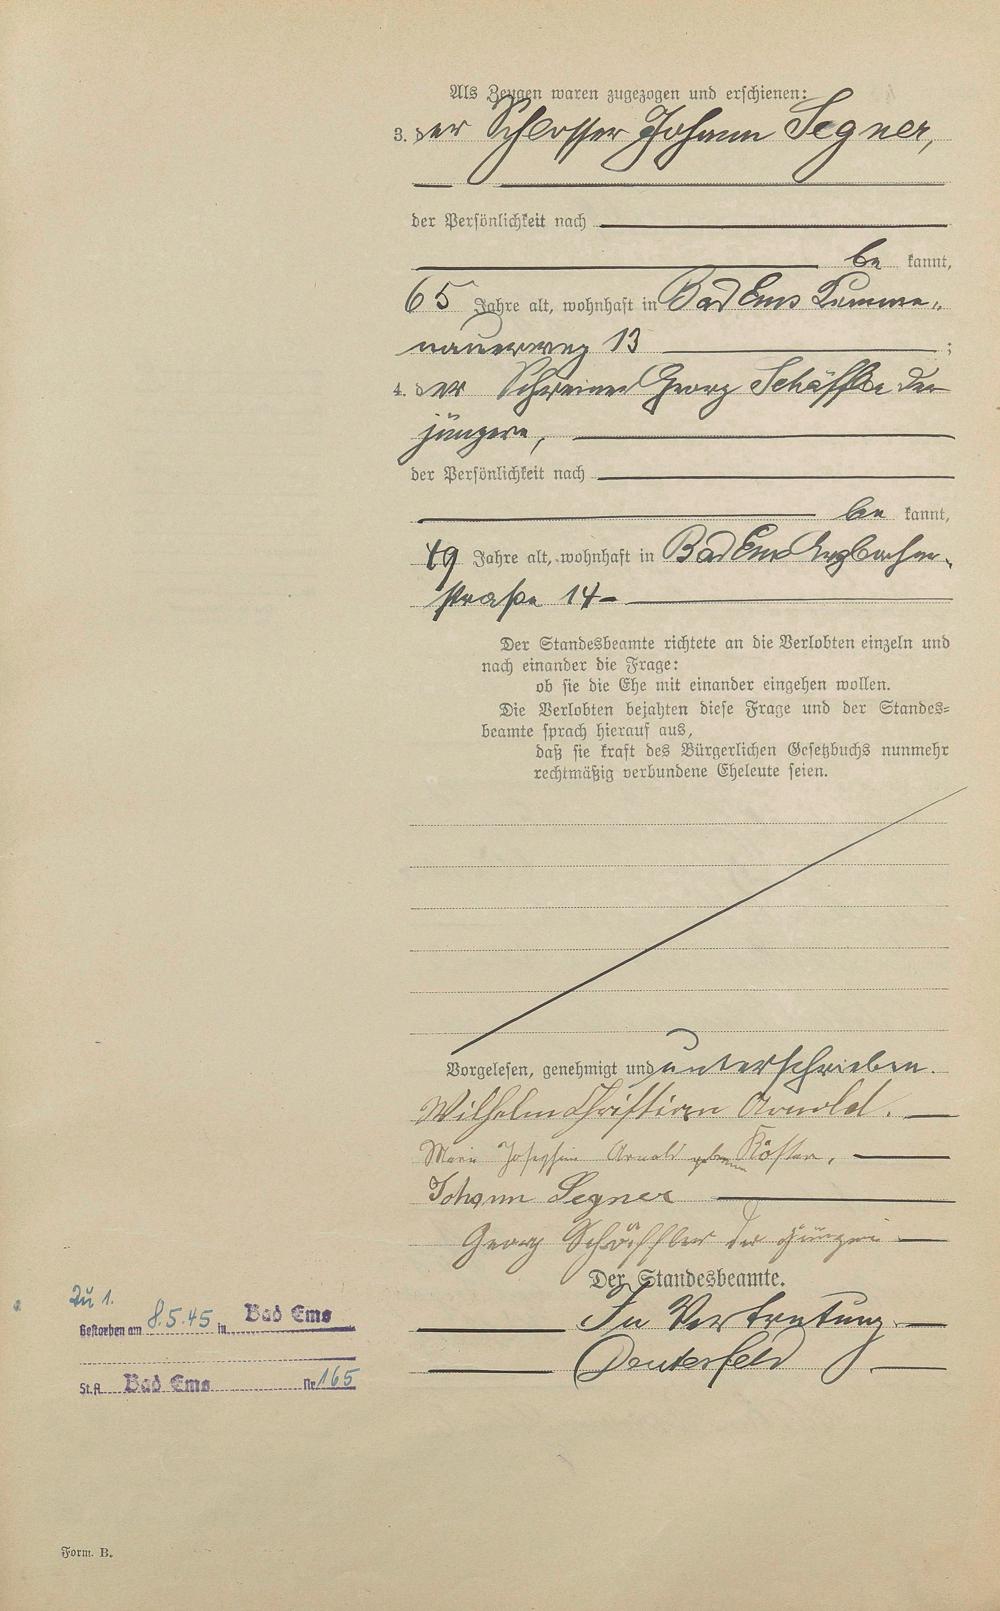 Als Zeugen waren zugezogen und erschienen:
3. der Schlosser Johann Segner,
der Persönlichkeit nach
be kannt,
65 Jahre alt, wohnhaft in Bad Ems Kemme-
nauerweg 13 ;
4. der Schreiner Georg Schäffler der
jüngere,
der Persönlichkeit nach
be kannt,
49 Jahre alt, wohnhaft in Bad Ems Arzbacher-
straße 14
Der Standesbeamte richtete an die Verlobten einzeln und
nach einander die Frage:
ob sie die Ehe mit einander eingehen wollen.
Die Verlobten bejahten diese Frage und der Standes-
beamte sprach hierauf aus,
daß sie kraft des Bürgerlichen Gesetzbuchs nunmehr
rechtmäßig verbundene Eheleute seien.
Vorgelesen, genehmigt und unterschrieben.
Wilhelm Christian Arnold.
Maria Josephin Arnold geborene Köster.
Johann Segner
Georg Schäffler der jüngere
Der Standesbeamte.
In Vertretung
Zu 1.
Gestorben am 8.5.45 in Bad Ems
St.A. Bad Ems Nr 165
Form. B.